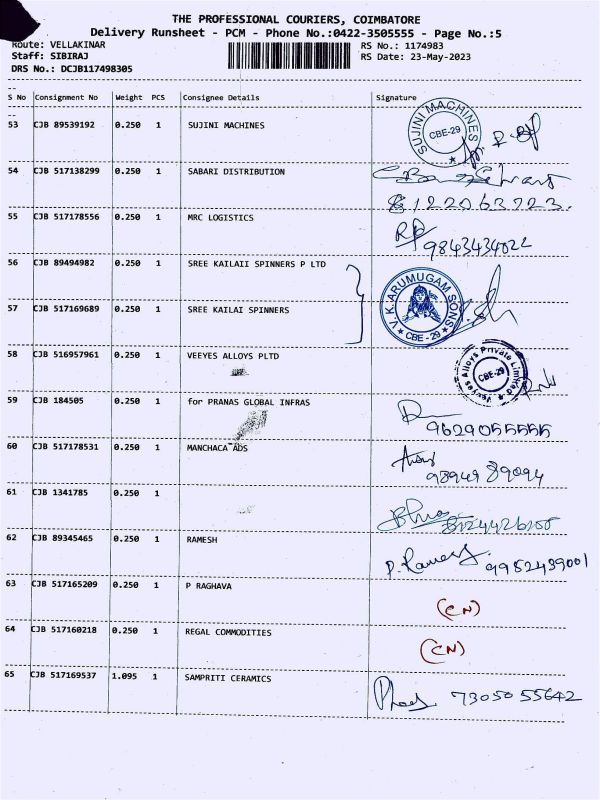 THE PROFESSIONAL COURIERS, COIMBATORE
Delivery Runsheet - PCM - Phone No.:0422-3505555 - Page No.:5
Route: VELLAKINAR RS No.: 1174983
Staff: SIBIRAJ RS Date: 23-May-2023
DRS No.: DCJB117498305
S No Consignment No Weight PCS Consignee Details Signature
53 CJB 89539192 0.250 1 SUJINI MACHINES SUJINI MACHINES CBE-29
54 CJB 517138299 0.250 1 SABARI DISTRIBUTION
8122063723.
55 CJB 517178556 0.250 1 MRC LOGISTICS
9843434022
56 CJB 89494982 0.250 1 SREE KAILAII SPINNERS P LTD
V.K.ARUMUGAM SONS CBE-29
57 CJB 517169689 0.250 1 SREE KAILAI SPINNERS
58 CJB 516957961 0.250 1 VEEYES ALLOYS PLTD Veeyes Alloys Private Limited CBE-29
59 CJB 184505 0.250 1 for PRANAS GLOBAL INFRAS
9629055555
60 CJB 517178531 0.250 1 MANCHACA ADS
9894989094
61 CJB 1341785 0.250 1
62 CJB 89345465 0.250 1 RAMESH
P. Ramesh 9952499001
63 CJB 517165209 0.250 1 P RAGHAVA
(CN)
64 CJB 517160218 0.250 1 REGAL COMMODITIES
(CN)
65 CJB 517169537 1.095 1 SAMPRITI CERAMICS
7305055642